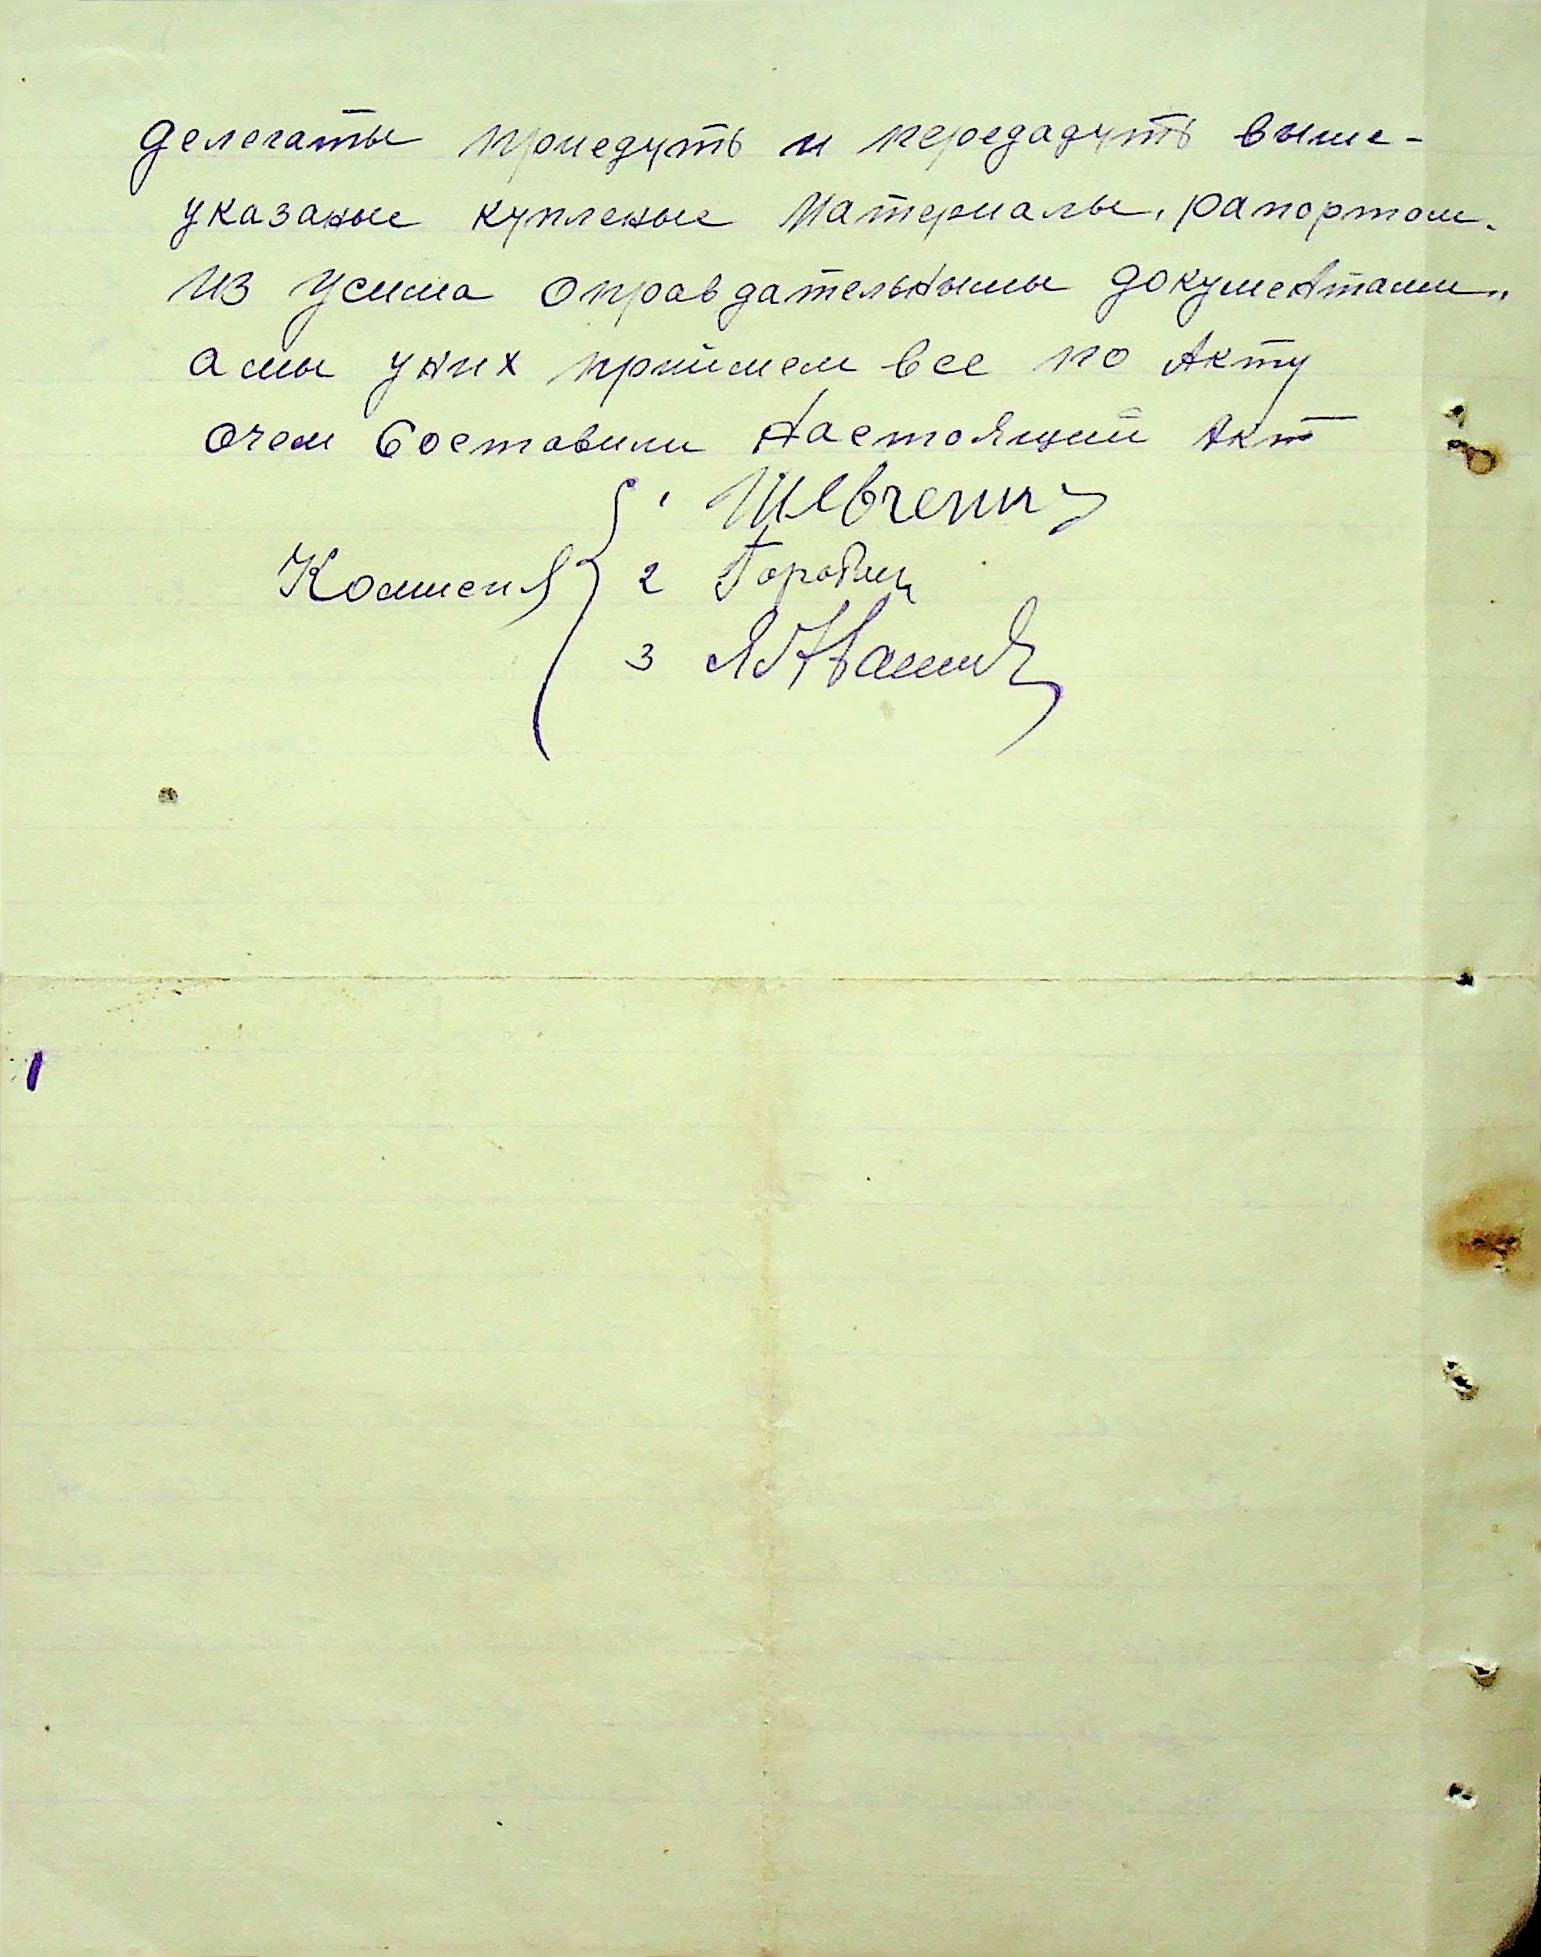 делегаты приедуть и передадуть выше-
указаные купленые материалы, рапортом.
из усима оправдательнымы документами,,
а мы у них приймем все по Акту
очем Составили Настоящий Акт
1 Шевченко
Комисия 2
3